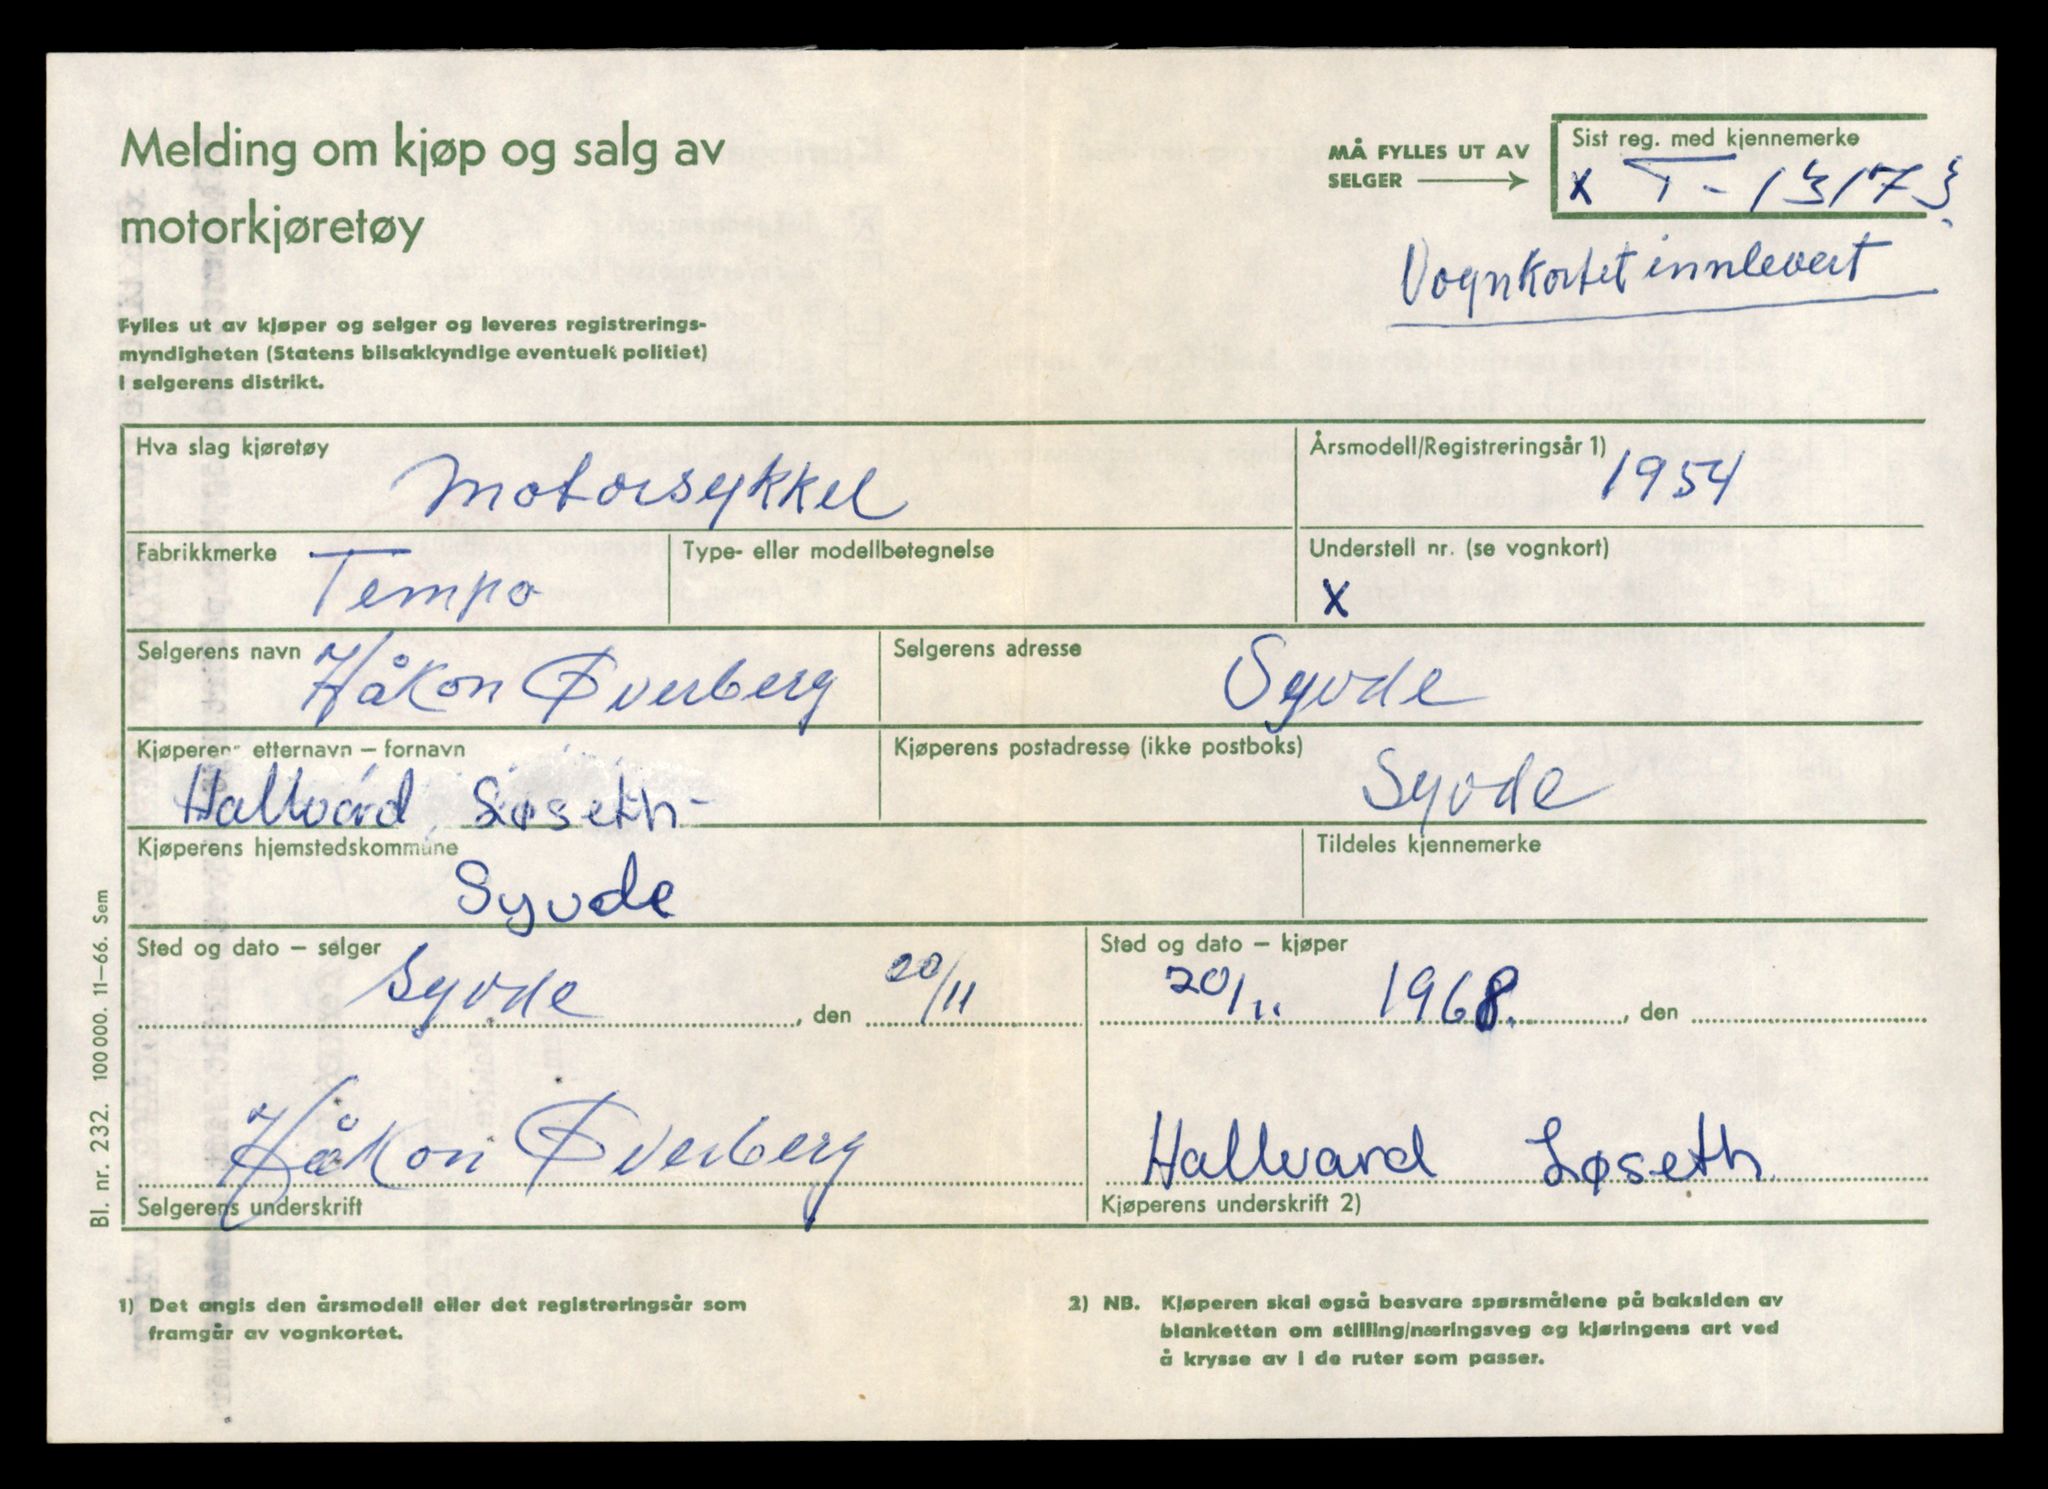 Melding om kjøp og salg av
motorkjøretøy
MÅ FYLLES UT AV
SELGER
Sist reg. med kjennemerke
x T-13173
Vognkortet innlevert
Fylles ut av kjøper og selger og leveres registrerings-
myndigheten (Statens bilsakkyndige eventuelt politiet)
i selgerens distrikt.
Hva slag kjøretøy
Motorsykkel
Årsmodell/Registreringsår 1)
1954
Fabrikkmerke
Tempo
Type- eller modellbetegnelse
Understell nr. (se vognkort)
x
Selgerens navn
Håkon Øverberg
Selgerens adresse
Syvde
Kjøperens etternavn – fornavn
Hallvard Løseth
Kjøperens postadresse (ikke postboks)
Syvde
Kjøperens hjemstedskommune
Syvde
Tildeles kjennemerke
Sted og dato – selger
Syvde, den 20/11
Sted og dato – kjøper
20/11. 1968., den
Håkon Øverberg
Selgerens underskrift
Hallvard Løseth
Kjøperens underskrift 2)
Bl. nr. 232. 100 000. 11–66. Sem
1) Det angis den årsmodell eller det registreringsår som
framgår av vognkortet.
2) NB. Kjøperen skal også besvare spørsmålene på baksiden av
blanketten om stilling/næringsveg og kjøringens art ved
å krysse av i de ruter som passer.